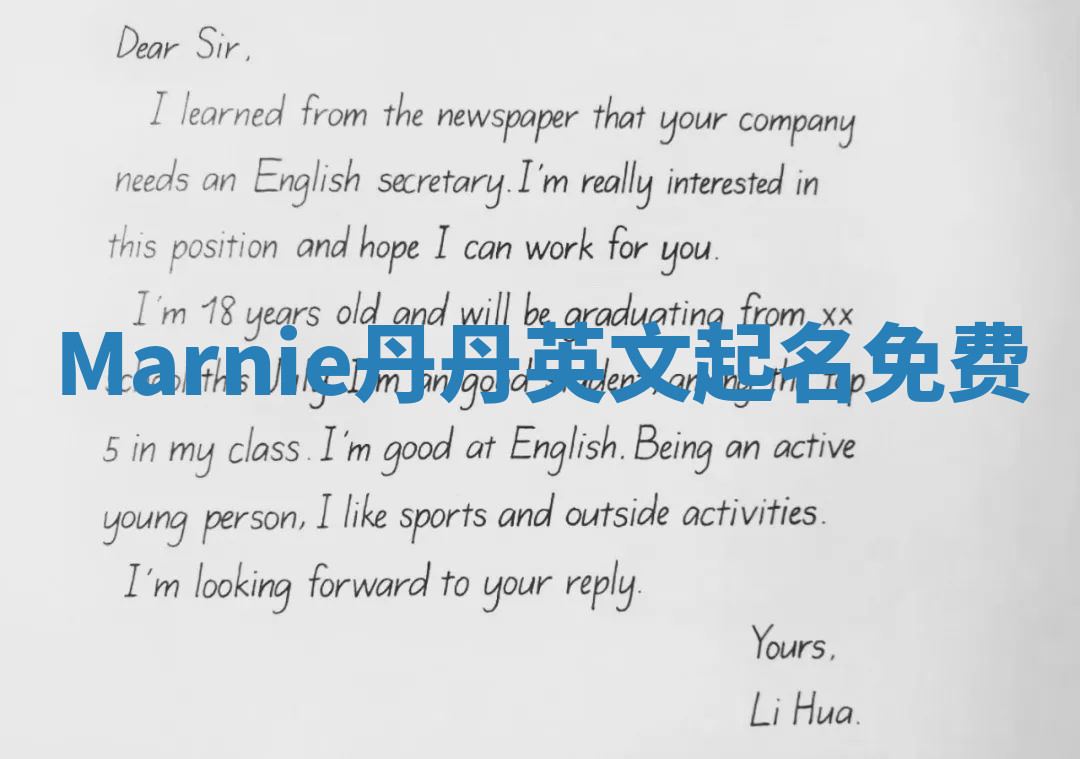 Dear Sir,
I learned from the newspaper that your company
needs an English secretary. I'm really interested in
this position and hope I can work for you.
I'm 18 years old and will be graduating from xx
Marnie丹丹英文起名免费
school this July. I'm an good student, among the top
5 in my class. I'm good at English. Being an active
young person, I like sports and outside activities.
I'm looking forward to your reply.
Yours,
Li Hua.